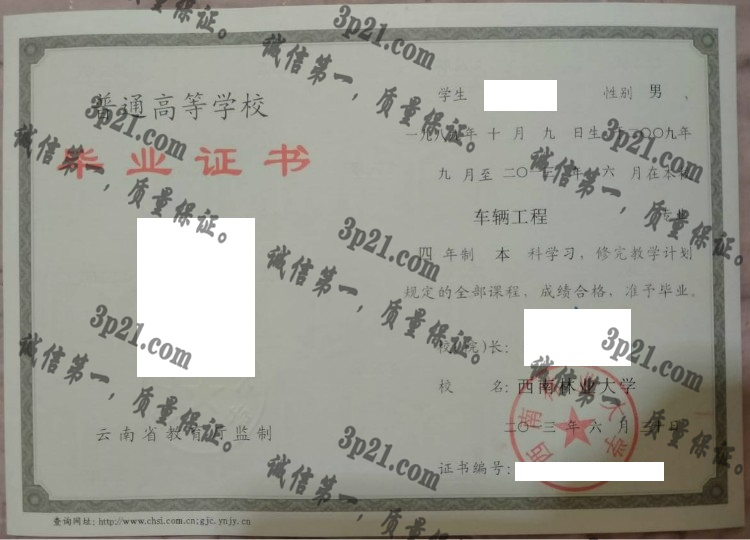 普通高等学校
毕业证书
云南省教育厅监制
查询网址: http://www.chsi.com.cn;gjc.ynjy.cn
学生 性别 男 ,
年 十 月 九 日生 二〇〇九年
九 月至 二〇 年 六 月在本校
车辆工程 专业
四 年制 本 科学习, 修完教学计划
规定的全部课程, 成绩合格, 准予毕业。
校(院)长:
校 名: 西南林业大学
二〇一三 年 六 月 三十 日
证书编号:
西南林业大学
3p21.com
诚信第一, 质量保证。
3p21.com
诚信第一, 质量保证。
3p21.com
诚信第一, 质量保证。
3p21.com
诚信第一, 质量保证。
3p21.com
诚信第一, 质量保证。
3p21.com
诚信第一, 质量保证。
3p21.com
诚信第一, 质量保证。
3p21.com
诚信第一, 质量保证。